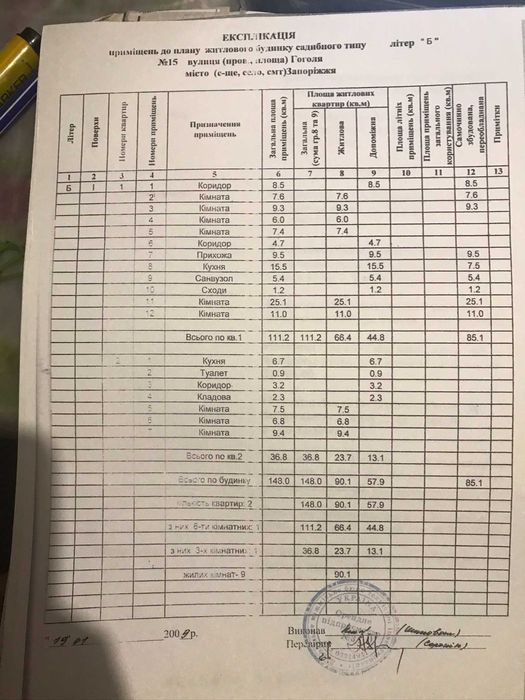 ЕКСПЛІКАЦІЯ
приміщень до плану житлового будинку садибного типу літер "Б"
№15 вулиця (пров., площа) Гоголя
місто (с-ще, село, смт)Запоріжжя
Літер Поверхи Номери квартир Номери приміщень Призначення приміщень Загальна площа приміщень (кв.м) Площа житлових квартир (кв.м) Загальна (сума гр.8 та 9) Житлова Допоміжна Площа літніх приміщень (кв.м) Площа приміщень загального користування (кв.м) Самочинно збудована, переобладнана Примітки
1 2 3 4 5 6 7 8 9 10 11 12 13
Б І 1 1 Коридор 8.5 8.5 8.5
2 Кімната 7.6 7.6 7.6
3 Кімната 9.3 9.3 9.3
4 Кімната 6.0 6.0
5 Кімната 7.4 7.4
6 Коридор 4.7 4.7
7 Прихожа 9.5 9.5 9.5
8 Кухня 15.5 15.5 7.5
9 Санвузол 5.4 5.4 5.4
10 Сходи 1.2 1.2 1.2
11 Кімната 25.1 25.1 25.1
12 Кімната 11.0 11.0 11.0
Всього по кв.1 111.2 111.2 66.4 44.8 85.1
2 1 Кухня 6.7 6.7
2 Туалет 0.9 0.9
3 Коридор 3.2 3.2
4 Кладова 2.3 2.3
5 Кімната 7.5 7.5
6 Кімната 6.8 6.8
7 Кімната 9.4 9.4
Всього по кв.2 36.8 36.8 23.7 13.1
Всього по будинку 148.0 148.0 90.1 57.9 85.1
кількість квартир: 2 148.0 90.1 57.9
з них 6-ти кімнатних: 1 111.2 66.4 44.8
з них 3-х кімнатних: 1 36.8 23.7 13.1
жилих кімнат- 9 90.1
УКРАЇНА
Орендне
" 19 01 2009 р. Виконав
Перевірив